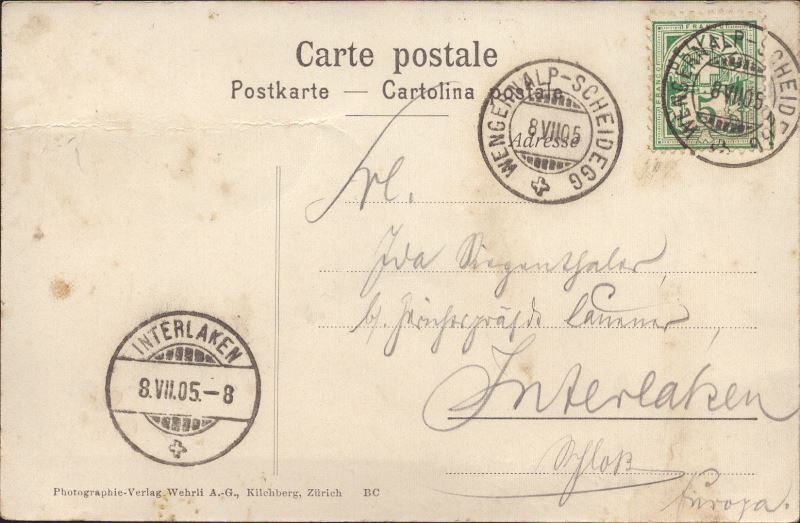 Carte postale
Postkarte — Cartolina postale
Adresse
WENGERNALP-SCHEIDEGG
8.VII.05
WENGERNALP-SCHEIDEGG
8.VII.05
FRANCO
Frl.
Ida Siegenthaler,
b/
Interlaken
Schloß
Europa.
INTERLAKEN
8.VII.05.–8
Photographie-Verlag Wehrli A.-G., Kilchberg, Zürich BC